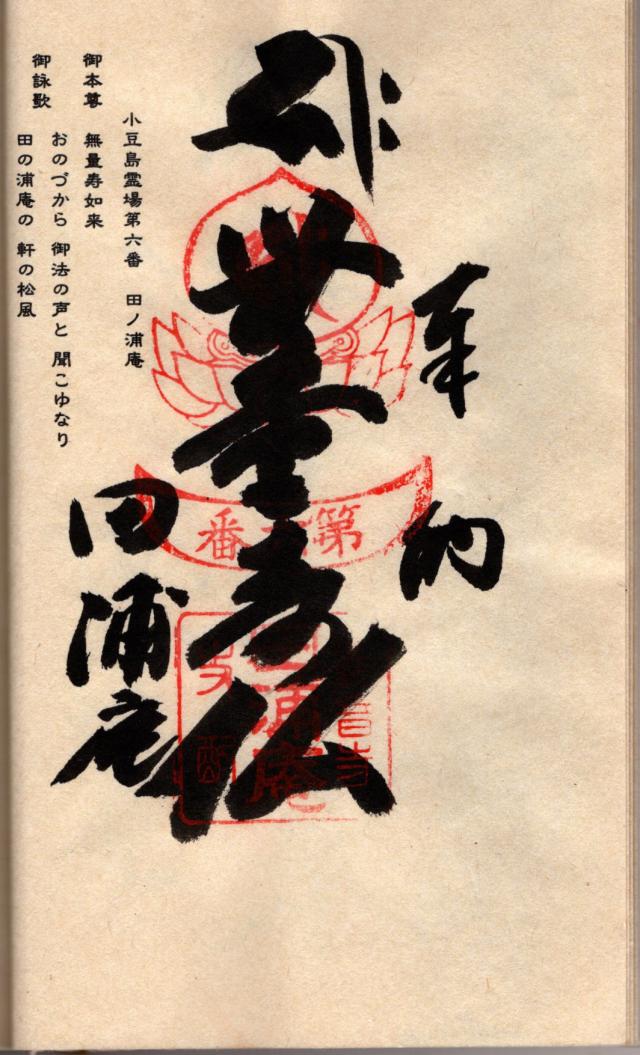 奉納
無量寿仏
田浦庵
第六番
田浦庵
小豆島霊場第六番 田ノ浦庵
御本尊 無量寿如来
御詠歌 おのづから 御法の声と 聞こゆなり
田の浦庵の 軒の松風